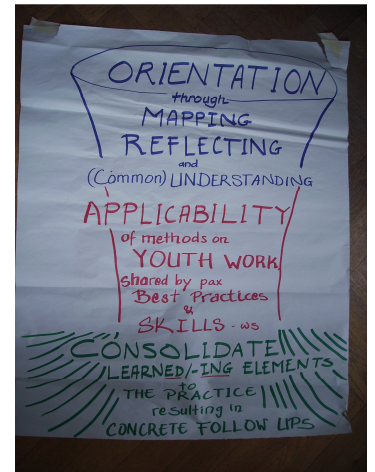 ORIENTATION
through
MAPPING
REFLECTING
and
(Common) UNDERSTANDING
APPLICABILITY
of methods on
YOUTH WORK
shared by pax
Best Practices
&
SKILLS - ws
CONSOLIDATE
LEARNED/-ING ELEMENTS
to
THE PRACTICE
resulting in
CONCRETE FOLLOW UPS